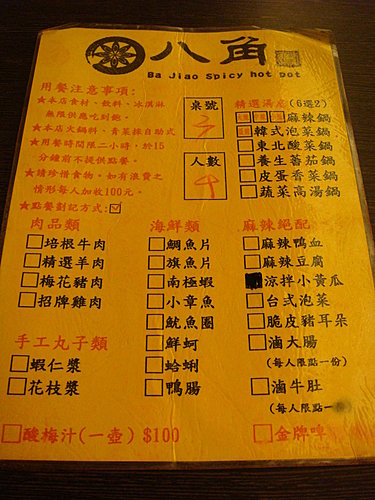 八角
Ba Jiao Spicy hot pot
用餐注意事項:
★本店食材、飲料、冰淇淋
無限供應吃到飽.
★本店火鍋料、青菜採自助式
★用餐時間限二小時，於15
分鐘前不提供點餐。
★請珍惜食物，如有浪費之
情形每人加收100元.
★點餐劃記方式:☑
桌號
人數
精選湯底(6選2)
麻辣鍋
韓式泡菜鍋
東北酸菜鍋
養生蕃茄鍋
皮蛋香菜鍋
蔬菜高湯鍋
肉品類
培根牛肉
精選羊肉
梅花豬肉
招牌雞肉
手工丸子類
蝦仁漿
花枝漿
海鮮類
鯛魚片
旗魚片
南極蝦
小章魚
魷魚圈
鮮蚵
蛤蜊
鴨腸
麻辣絕配
麻辣鴨血
麻辣豆腐
涼拌小黃瓜
台式泡菜
脆皮豬耳朵
滷大腸
(每人限點一份)
滷牛肚
(每人限點一
酸梅汁(一壺) $100
金牌啤